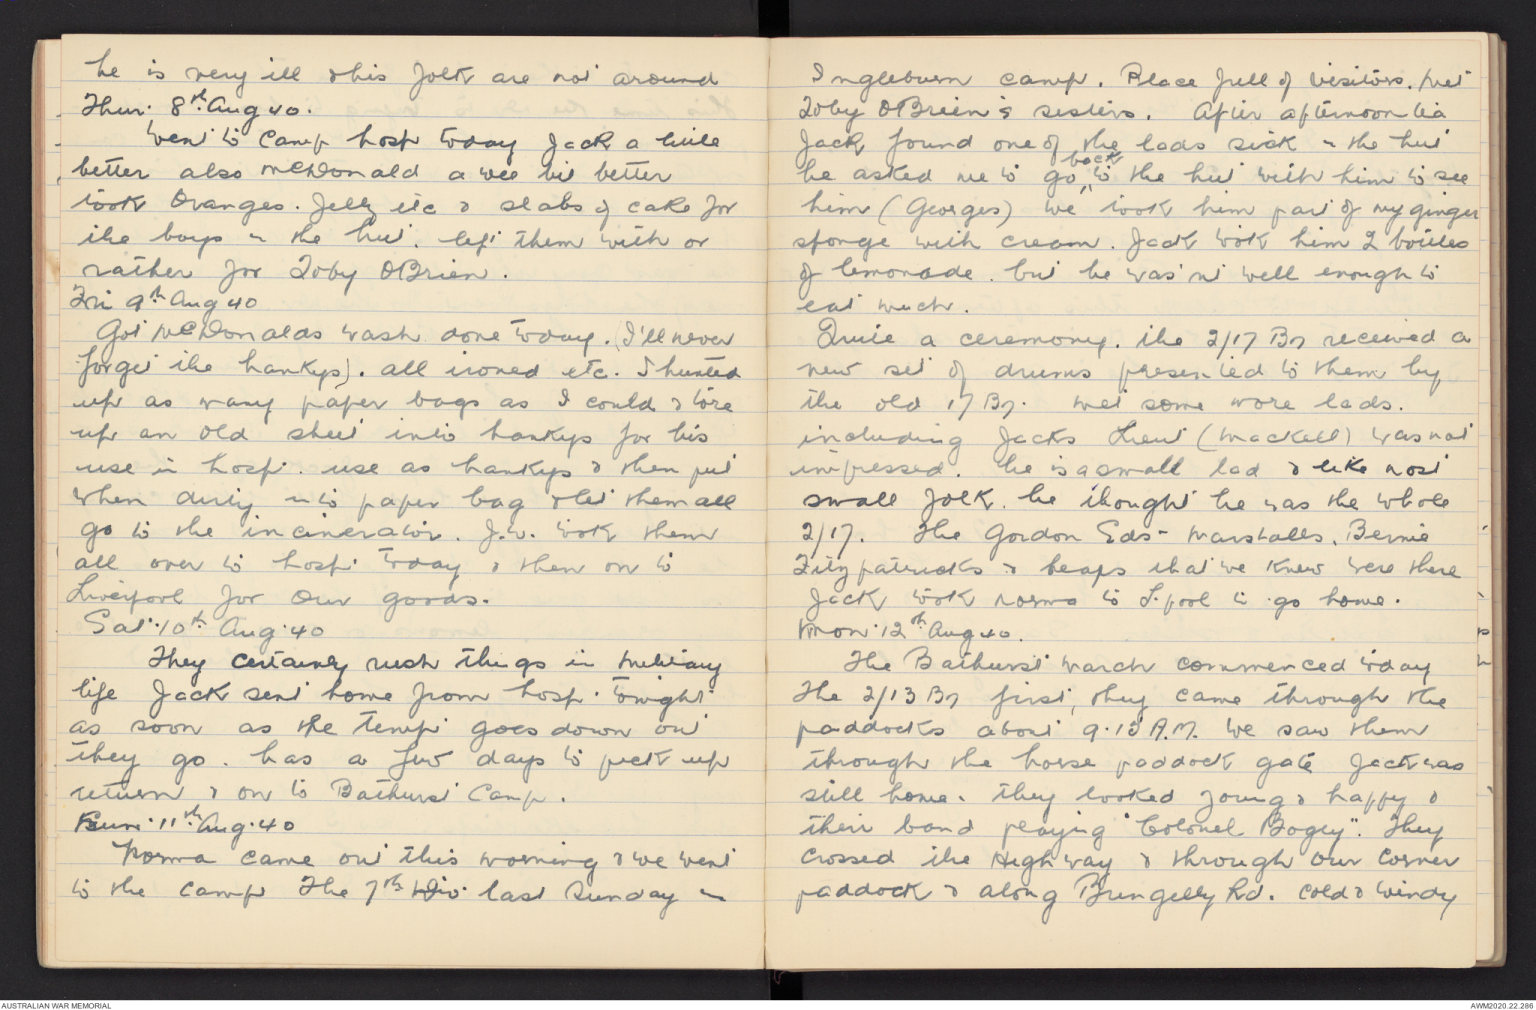 he is very ill & his folk are not around
Thur. 8th Aug 40.
Went to Camp hosp today Jack a little
better also McDonald a wee bit better
took Oranges. Jelly etc & slabs of cake for
the boys in the hut. left them with or
rather for Toby OBrien.
Fri 9th Aug 40
Got McDonalds wash done today. (I'll never
forget the hankys). all ironed etc. I hunted
up as many paper bags as I could & tore
up an old sheet into hankys for his
use in hosp. use as hankys & then put
when dirty into paper bag & let them all
go to the incinerator. J.W. took them
all over to hosp. today & then on to
Liverpool for our goods.
Sat. 10th Aug. 40
They certainly rush things in military
life Jack sent home from hosp. tonight
as soon as the temp goes down out
they go. has a few days to pick up
return & on to Bathurst Camp.
Sun. 11th Aug. 40
Norma came out this morning & we went
to the camp The 7th Div. last Sunday in
Ingleburn camp. Place full of visitors. Met
Toby OBrien's sisters. After afternoon tea
Jack found one of the lads sick in the hut
back
he asked me to go to the hut with him to see
him (Georges) we took him part of my ginger
sponge with cream. Jack took him 2 bottles
of lemonade. but he was'nt well enough to
eat much.
Quite a ceremony. the 2/17 Bn received a
new set of drums presented to them by
the old 17 Bn. Met some more lads.
including Jacks Lieut (Mackell) was not
impressed. he is a small lad & like most
small folk. he thought he was the whole
2/17. The Gordon Eds- Marshalls, Bernie
Fitzpatricks & heaps that we knew were there
Jack took Norma to L.pool to go home.
Mon. 12th Aug 40.
The Bathurst march commenced today
The 2/13 Bn first, they came through the
paddocks about 9.15 A.M. We saw them
through the horse paddock gate Jack was
still home. they looked young & happy &
their band playing "Colonel Bogey". They
crossed the Highway & through our corner
paddock & along Bringelly Rd. cold & windy
AUSTRALIAN WAR MEMORIAL
AWM2020.22.286